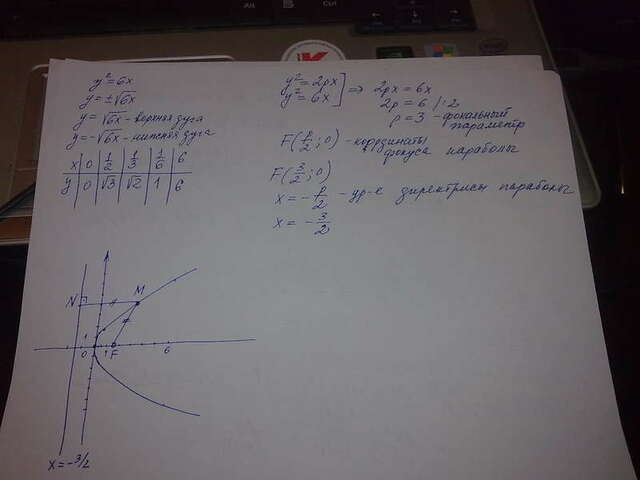 y² = 6x
y = ±√6x
y = √6x - верхняя дуга
y = -√6x - нижняя дуга
x | 0 | 1/2 | 1/3 | 1/6 | 6
y | 0 | √3 | √2 | 1 | 6
y² = 2px
y² = 6x ] => 2px = 6x
2p = 6 /:2
p = 3 - фокальный
параметр
F(p/2; 0) - координаты
фокуса параболы
F(3/2; 0)
x = -p/2 - ур-е директрисы параболы
x = -3/2
N
M
1
0
1
F
6
x = -3/2
Alt
Ctrl